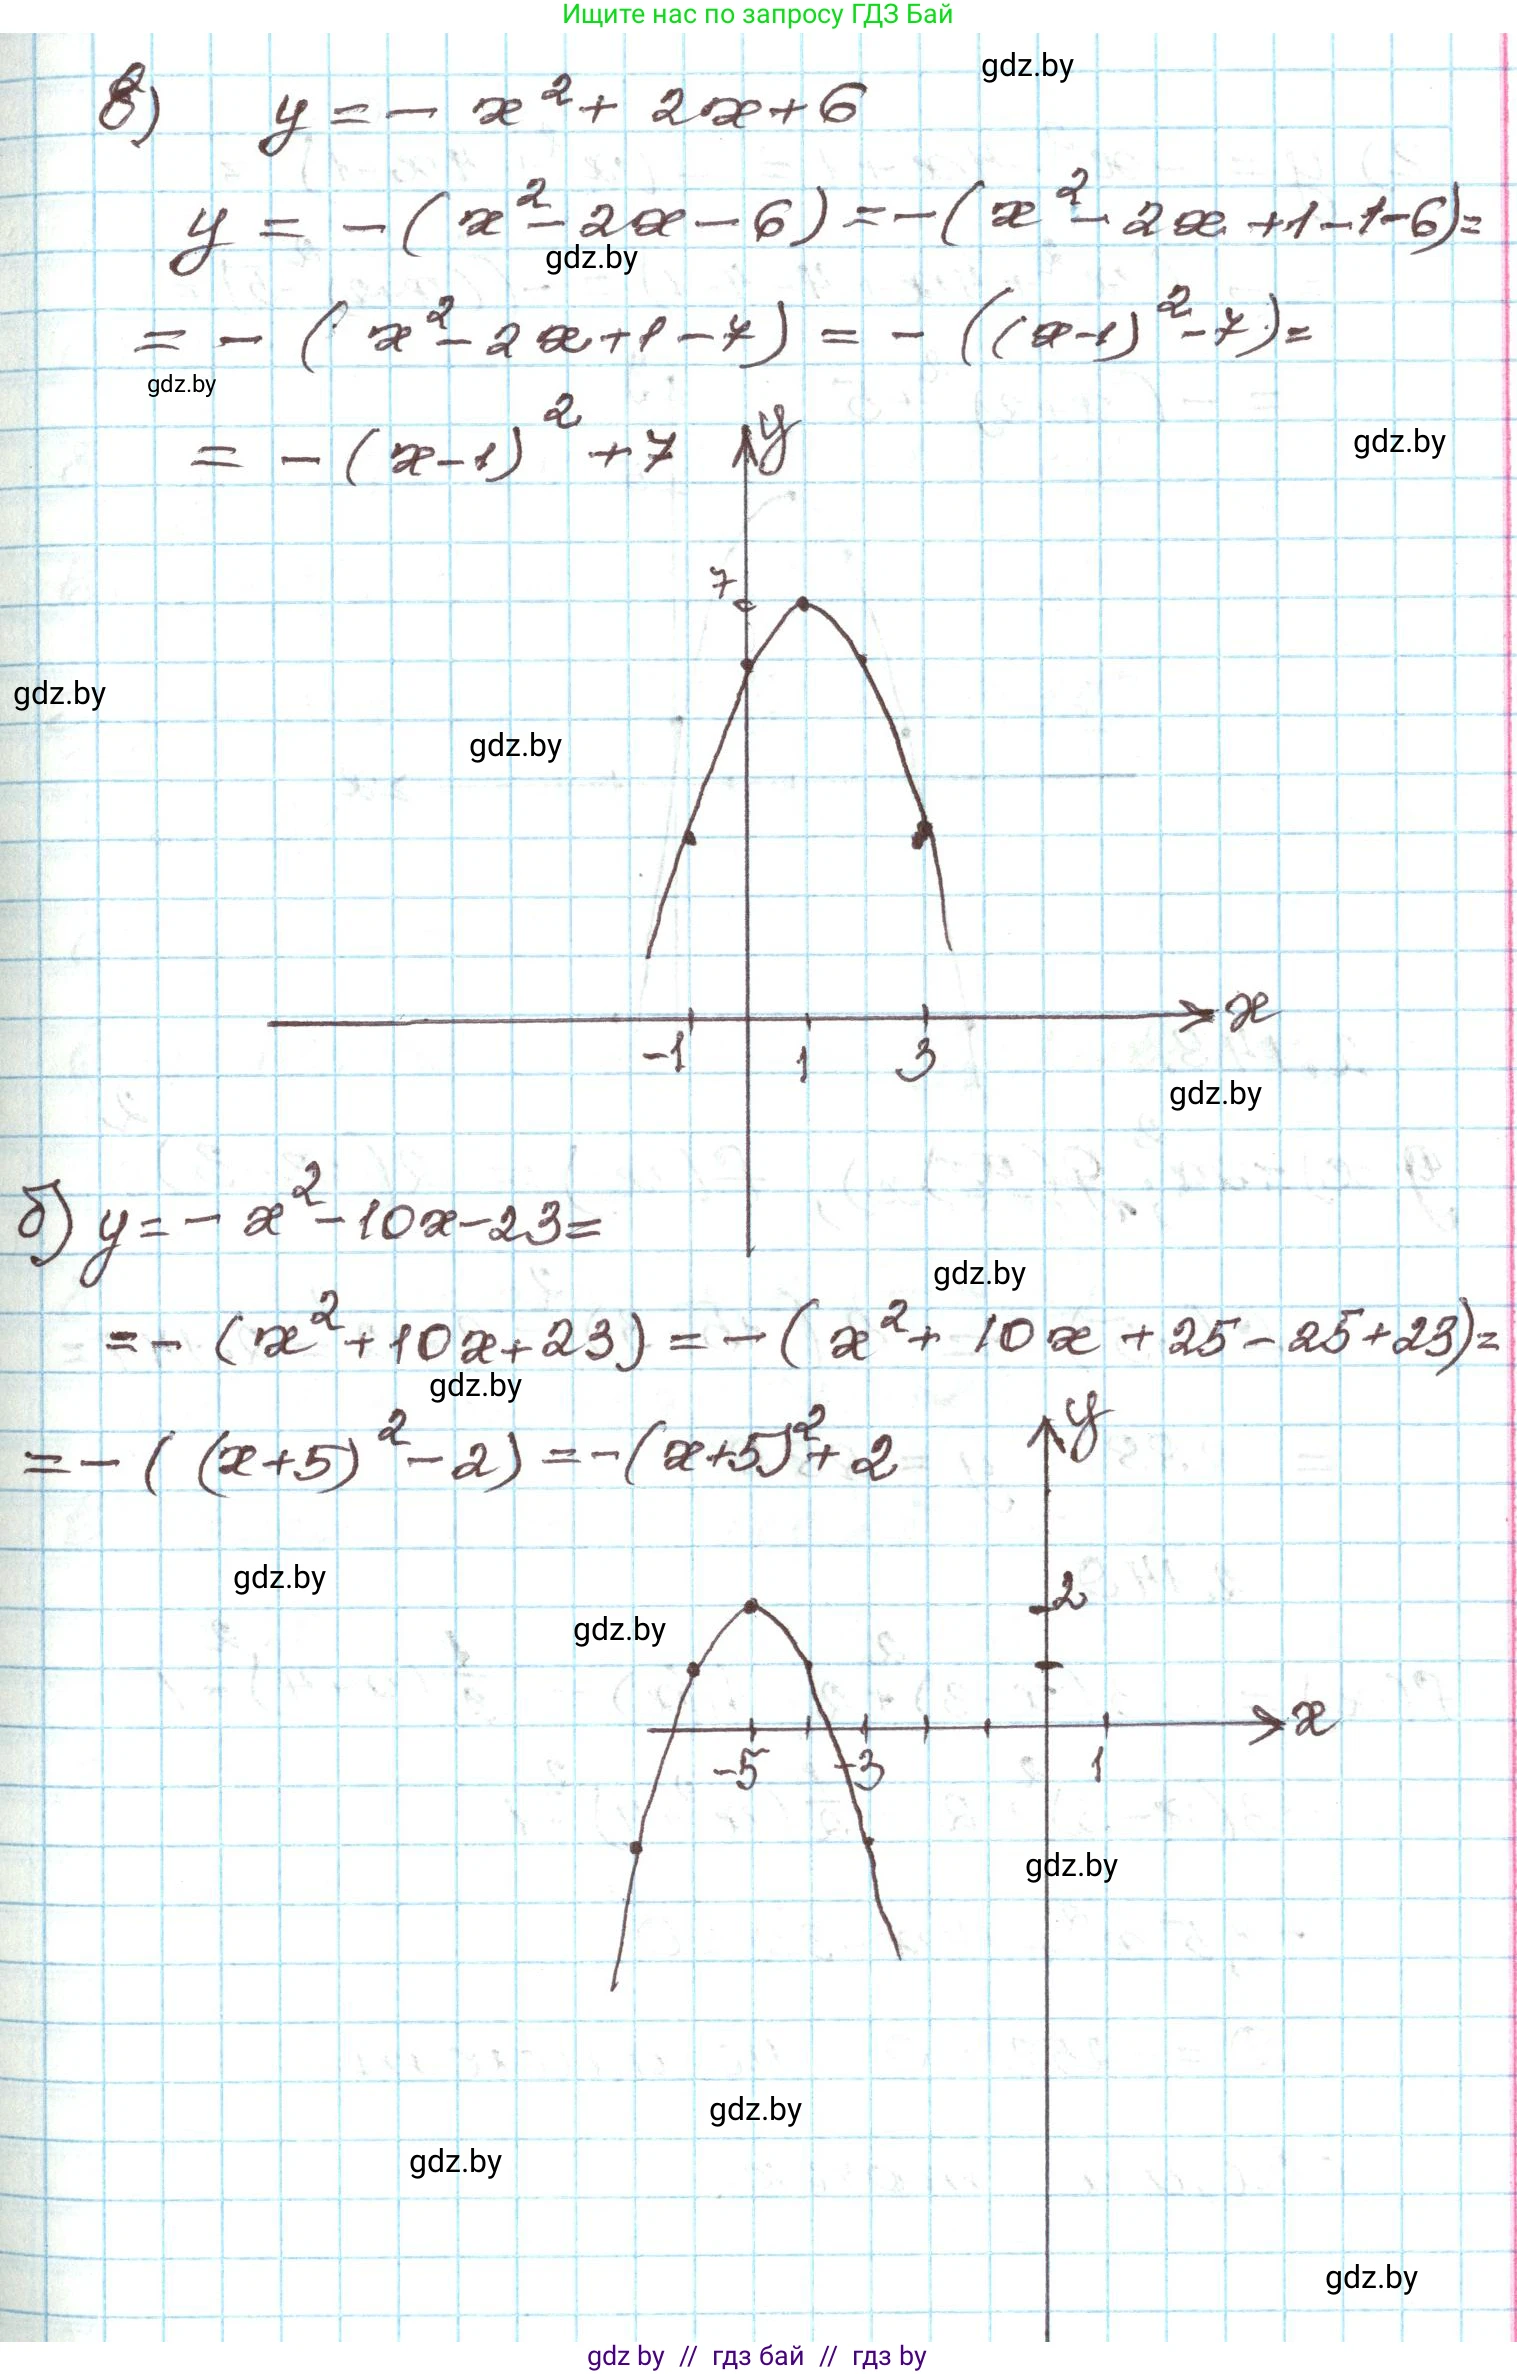 Ищите нас по запросу ГДЗ Бай
gdz.by
в) y = - x² + 2x + 6
y = - (x² - 2x - 6) = - (x² - 2x + 1 - 1 - 6) =
gdz.by
= - (x² - 2x + 1 - 7) = - ((x - 1)² - 7) =
gdz.by
= - (x - 1)² + 7
y
gdz.by
7
gdz.by
gdz.by
x
-1 1 3
gdz.by
б) y = - x² - 10x - 23 =
gdz.by
= - (x² + 10x + 23) = - (x² + 10x + 25 - 25 + 23) =
gdz.by
y
= - ((x + 5)² - 2) = - (x + 5)² + 2
gdz.by
2
gdz.by
x
-5 -3 1
gdz.by
gdz.by
gdz.by
gdz.by
gdz by // гдз бай // гдз by